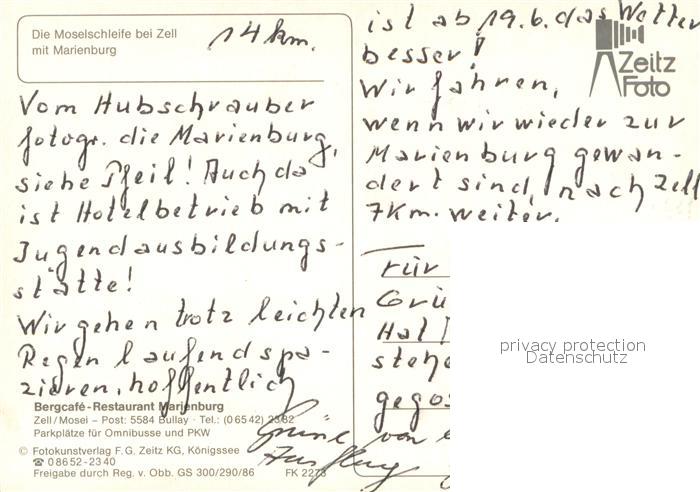 Die Moselschleife bei Zell
mit Marienburg
14 km.
Vom Hubschrauber
fotogr. die Marienburg,
siehe Pfeil! Auch da
ist Hotelbetrieb mit
Jugendausbildungs-
stätte!
Wir gehen trotz leichten
Regen laufend spa-
zieren, hoffentlich
Bergcafé-Restaurant Marienburg
Zell/Mosel – Post: 5584 Bullay · Tel.: (06542) 2382
Parkplätze für Omnibusse und PKW
© Fotokunstverlag F. G. Zeitz KG, Königssee
☎ 08652-2340
Freigabe durch Reg. v. Obb. GS 300/290/86 FK 2273
ist ab 19.6. das Wetter
besser!
Wir fahren,
wenn wir wieder zur
Marienburg gewan-
dert sind, nach Zell
7 Km. weiter.
Für
Grü
Hat
stehe
gegos
von
Zeitz
Foto
privacy protection
Datenschutz